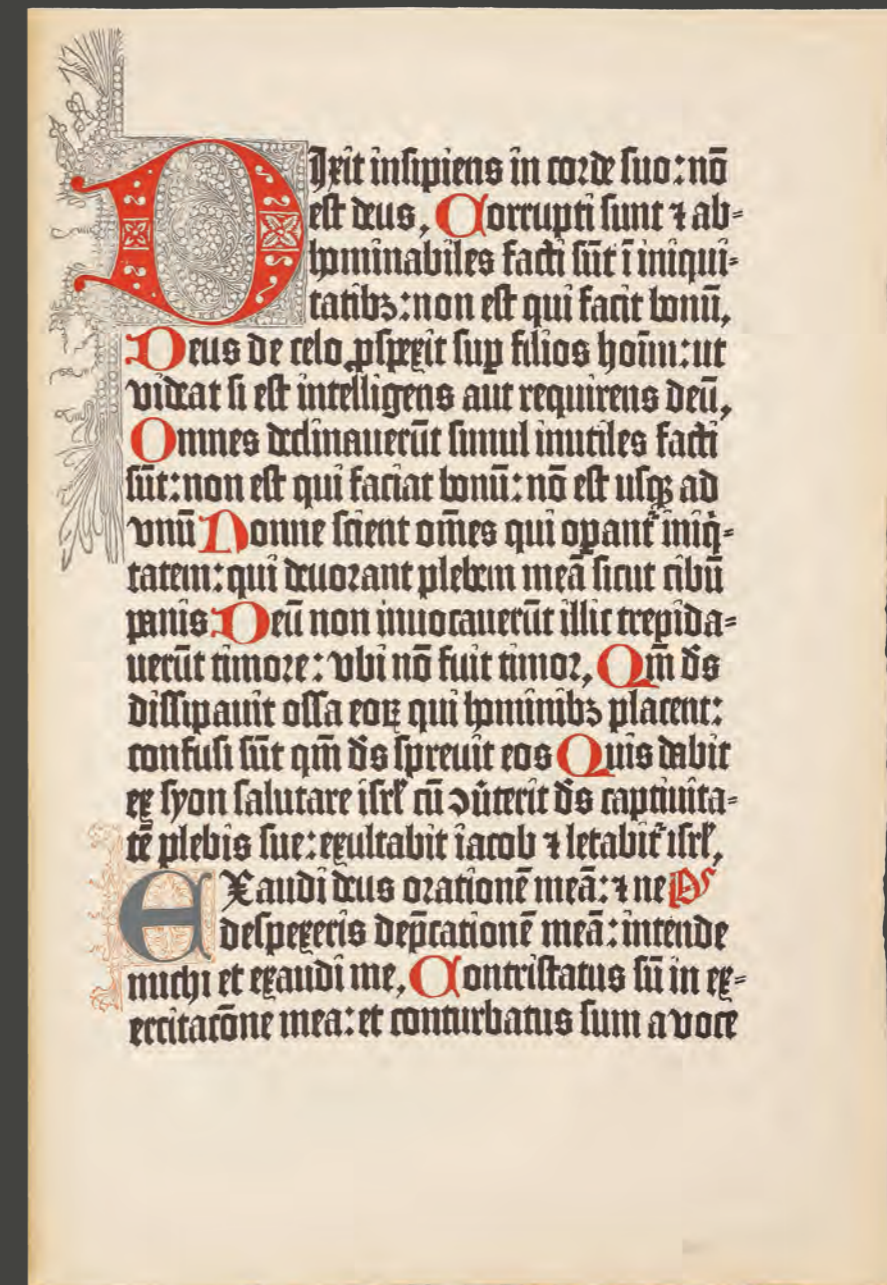 DIxit insipiens in corde suo: nō
est deus, Corrupti sunt ⁊ ab=
hominabiles facti sūt ī iniqui=
tatibꝫ: non est qui facit bonū,
Deus de celo ꝓspexit suꝑ filios hoīm: ut
videat si est intelligens aut requirens deū,
Omnes declinauerūt simul inutiles facti
sūt: non est qui faciat bonū: nō est usqꝫ ad
vnū Nonne scient om̄es qui oꝑant᷑ iniq̇=
tatem: qui deuorant plebem meā sicut cibū
panis Deū non inuocauerūt illic trepida=
uerūt timore: vbi nō fuit timor, Qm̄ ds̄
dissipauit ossa eoꝝ qui hominibꝫ placent:
confusi sūt qm̄ ds̄ spreuit eos Quis dabit
ex syon salutare isrl̄ cū ↄūterit ds̄ captiuita=
tē plebis sue: exultabit iacob ⁊ letabit᷑ isrl̄,
EXaudi deus orationē meā: ⁊ ne Ps
despexeris dep̄cationē meā: intende
michi et exaudi me, Contristatus sū in ex=
ercitacōne mea: et conturbatus sum a voce